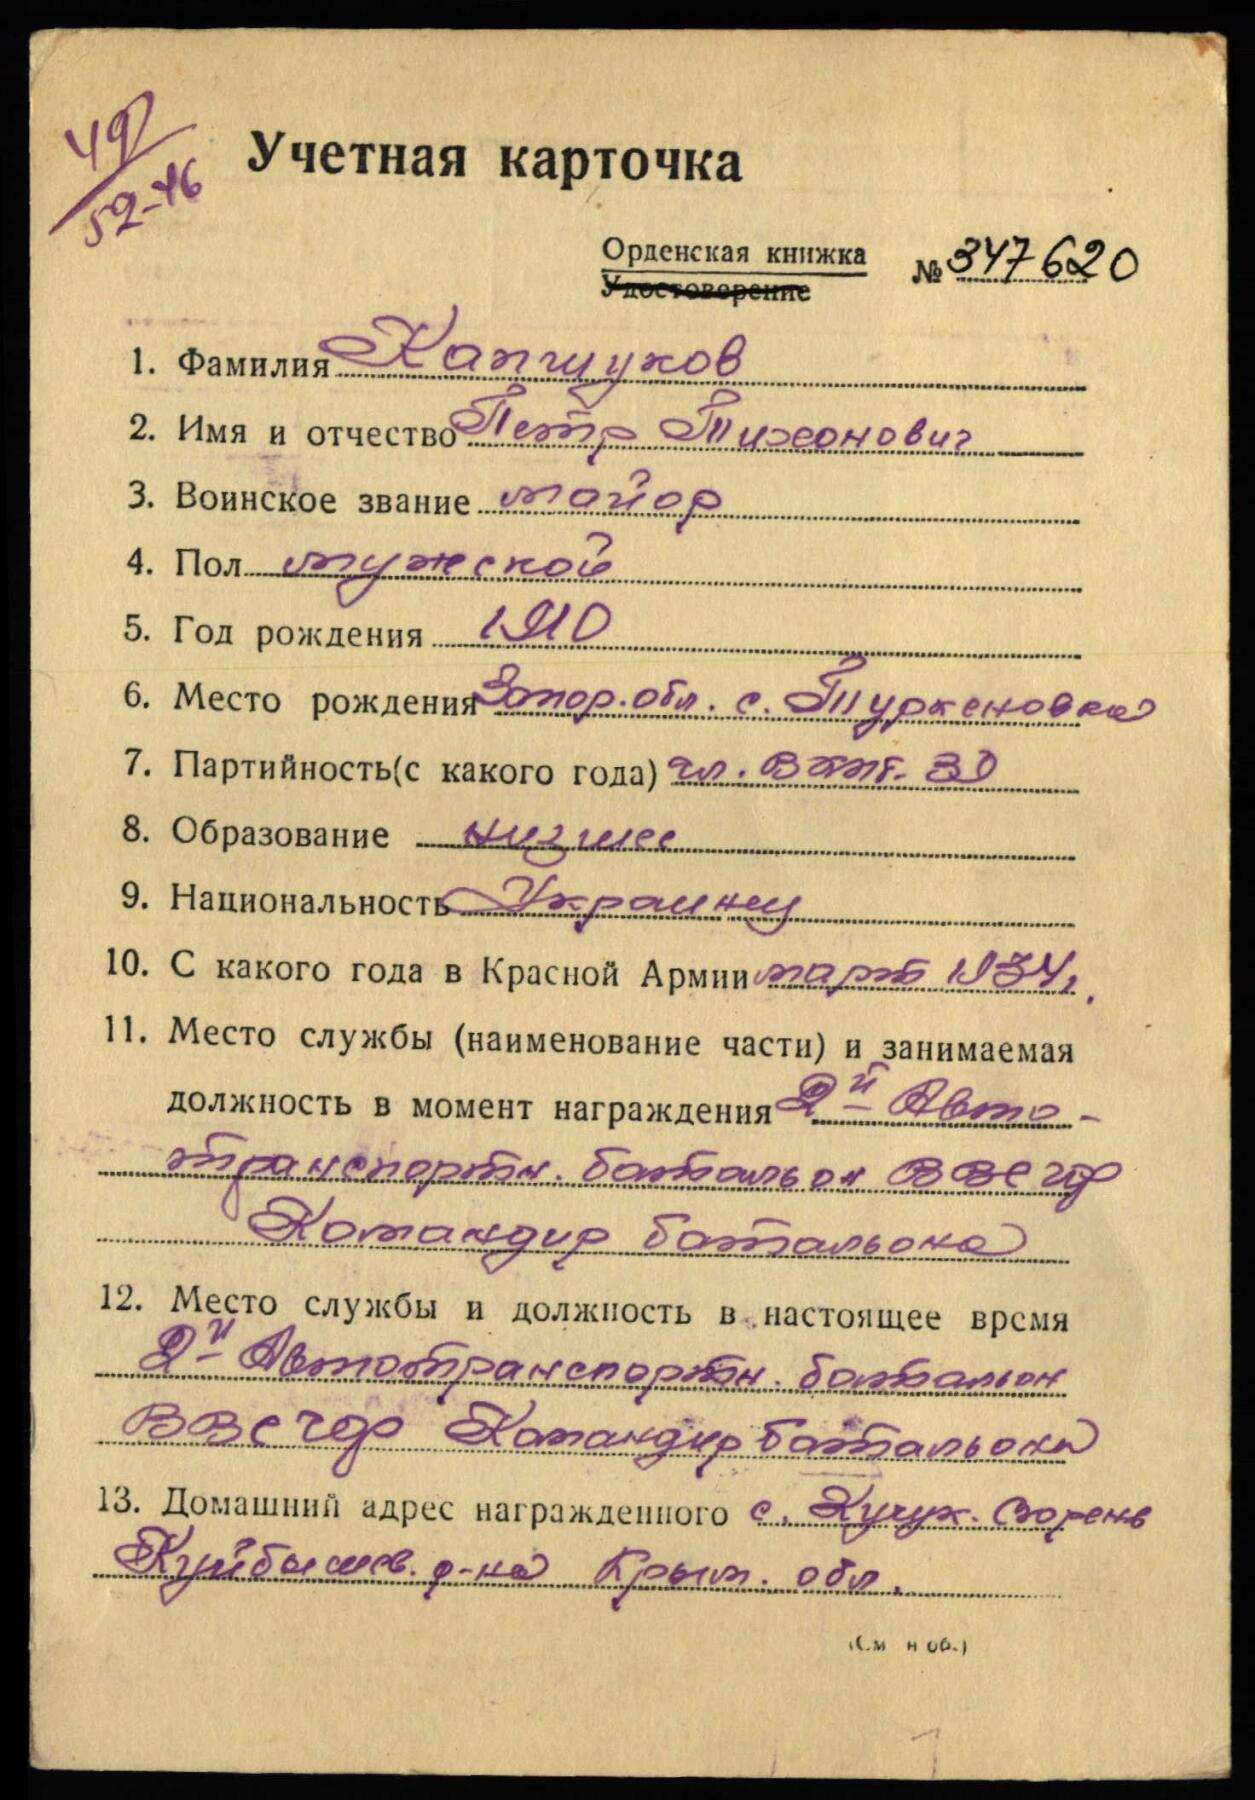 49/52-46
Учетная карточка
Орденская книжка № 347620
Удостоверение
1. Фамилия Капчуков
2. Имя и отчество Петр Тихонович
3. Воинское звание майор
4. Пол мужской
5. Год рождения 1910
6. Место рождения Запор. обл. с. Туркеновка
7. Партийность(с какого года) чл. ВКПб. 39
8. Образование низшее
9. Национальность Украинец
10. С какого года в Красной Армии март 1934 г.
11. Место службы (наименование части) и занимаемая
должность в момент награждения 2й Авто-
транспортн. батальон ВВС ЧФ
Командир батальона
12. Место службы и должность в настоящее время
2й Автотранспортн. батальон
ВВС ЧФ Командир батальона
13. Домашний адрес награжденного с. Кучук-
Куйбышев. р-на Крым. обл.
(См н об.)